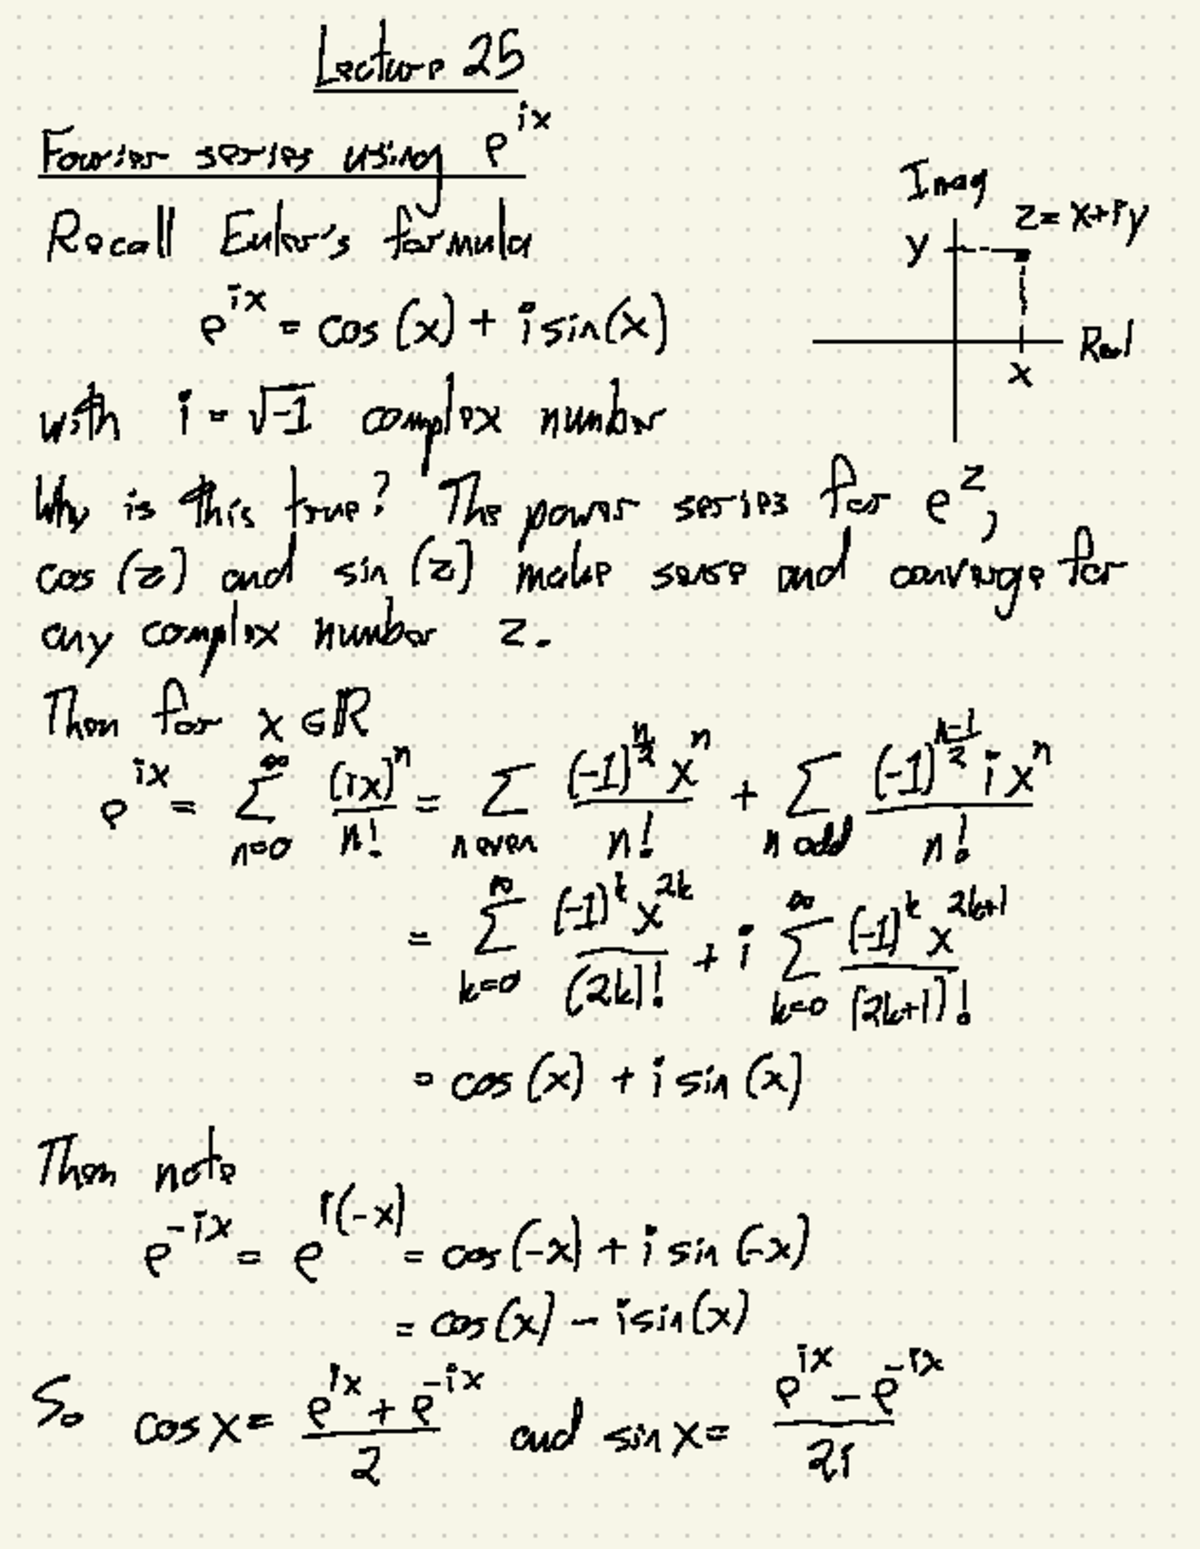 Lecture 25
Fourier series using e^{ix}
Recall Euler's formula
e^{ix} = cos(x) + i sin(x)
Imag
z = x+iy
y
Real
x
with i = √-1 complex number
Why is this true? The power series for e^z,
cos(z) and sin(z) make sense and converge for
any complex number z.
Then for x ∈ ℝ
e^{ix} = ∑_{n=0}^{∞} (ix)^n / n! = ∑_{n even} (-1)^{n/2} x^n / n! + ∑_{n odd} (-1)^{(n-1)/2} i x^n / n!
= ∑_{k=0}^{∞} (-1)^k x^{2k} / (2k)! + i ∑_{k=0}^{∞} (-1)^k x^{2k+1} / (2k+1)!
= cos(x) + i sin(x)
Then note
e^{-ix} = e^{i(-x)} = cos(-x) + i sin(-x)
= cos(x) - i sin(x)
So cos x = (e^{ix} + e^{-ix}) / 2 and sin x = (e^{ix} - e^{-ix}) / 2i